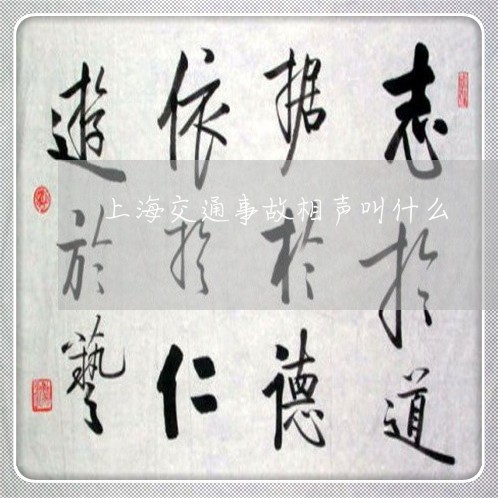 志於道
据於德
依於仁
遊於藝
上海交通事故相声叫什么